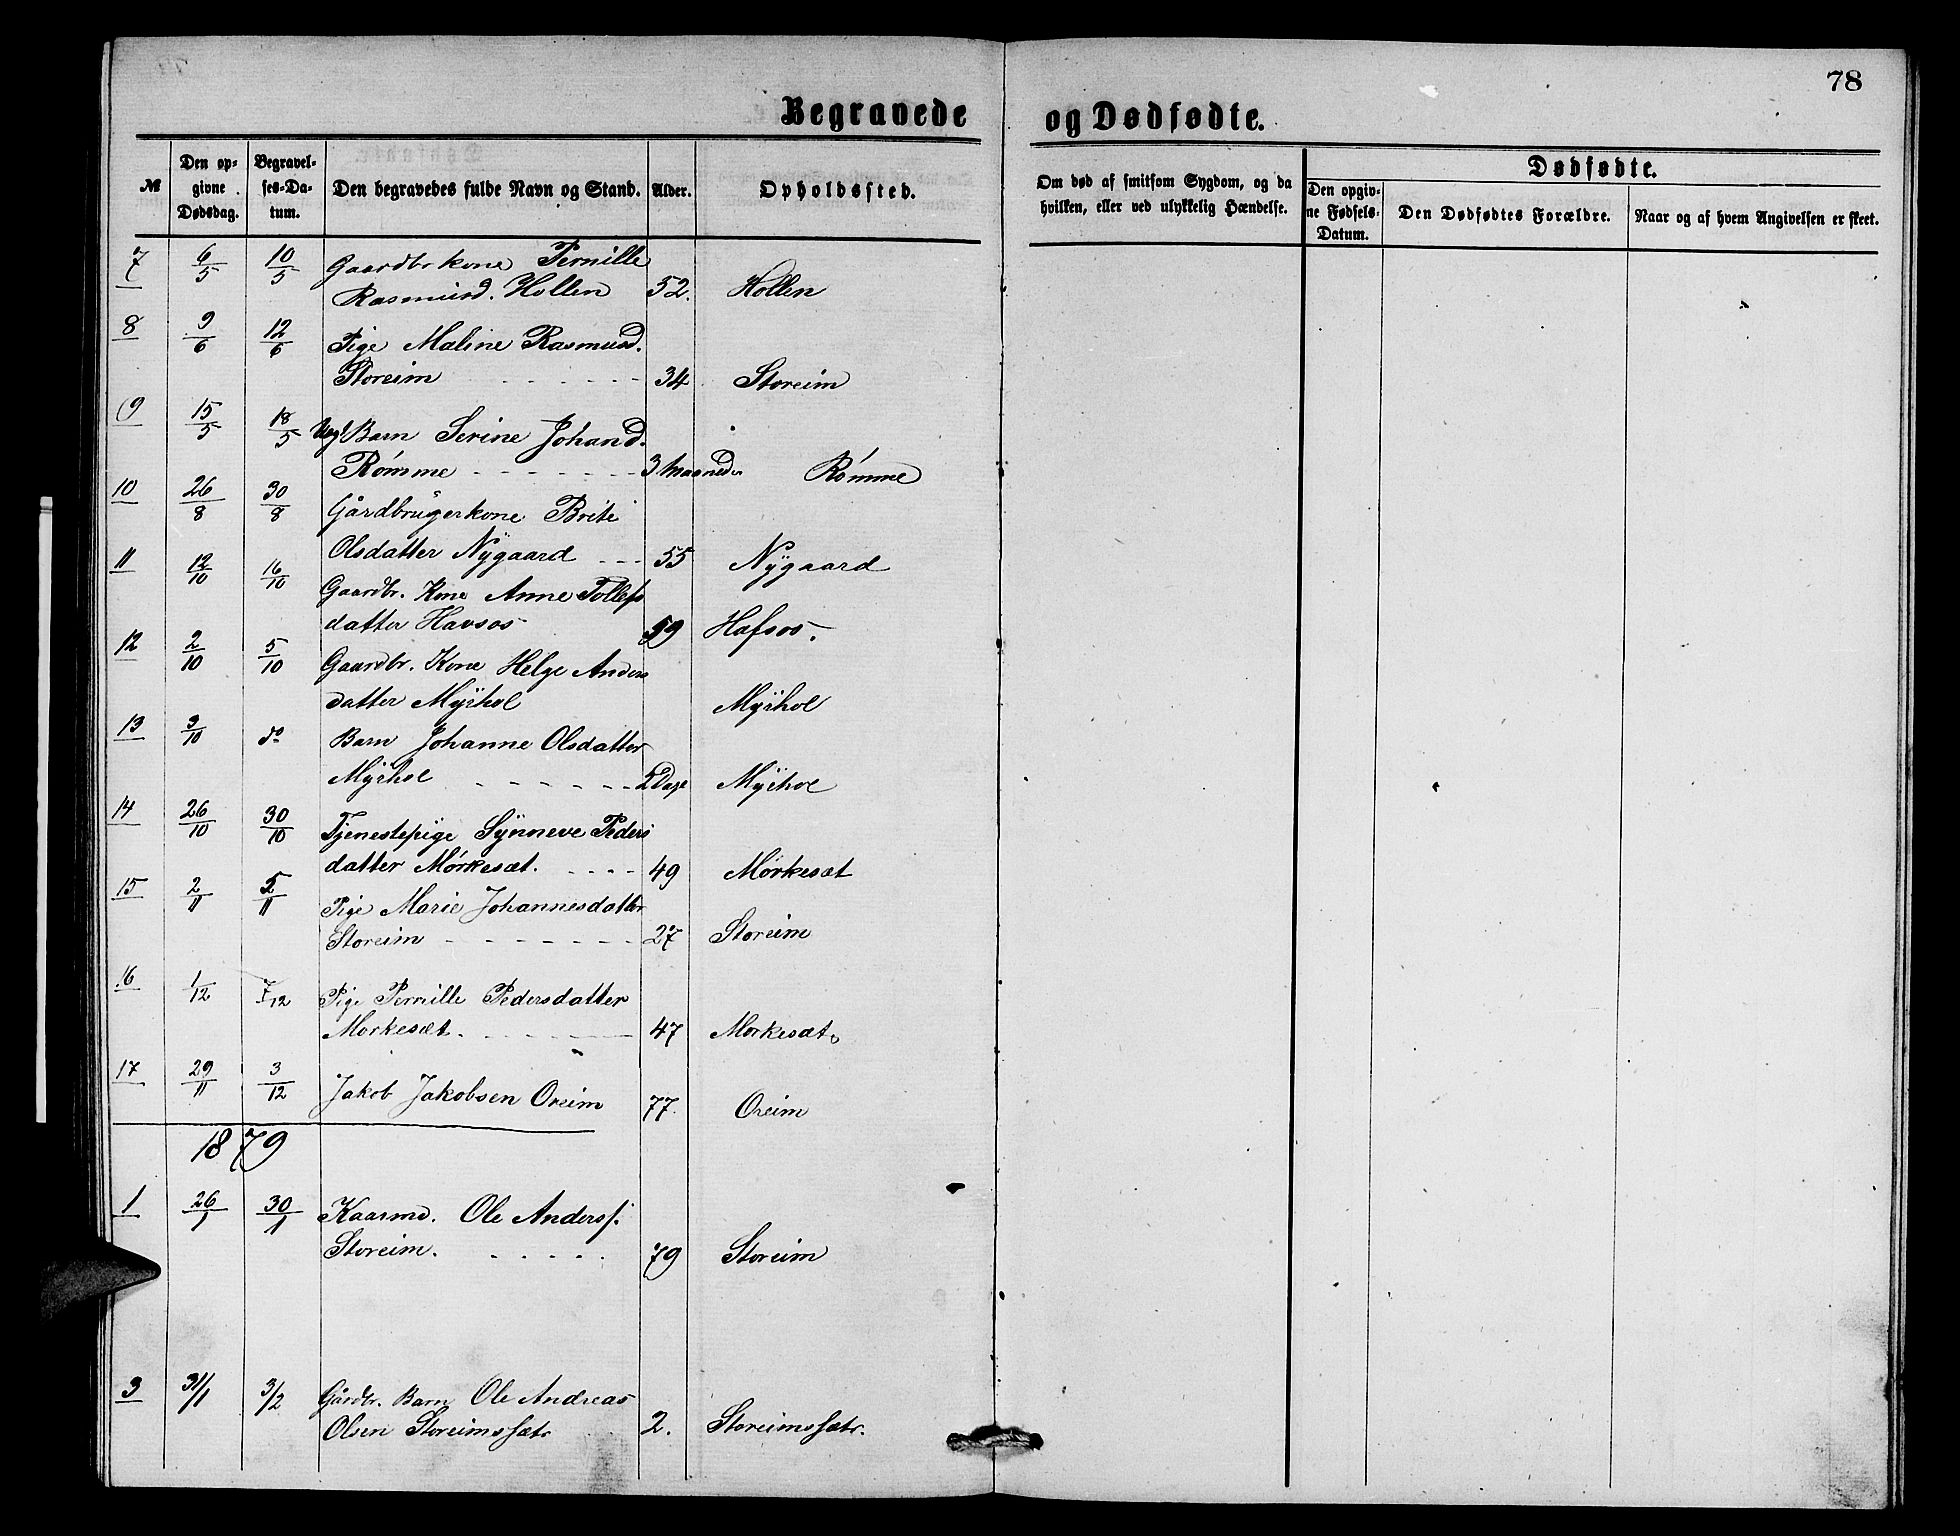 78
Begravede og Dødfødte.
№
Den opgivne Dødsdag.
Begravelses-Datum.
Den begravedes fulde Navn og Stand.
Alder.
Opholdssted.
Om død af smitsom Sygdom, og da hvilken, eller ved ulykkelig Hændelse.
Dødfødte.
Den opgivne Fødsels-Datum.
Den Dødfødtes Forældre.
Naar og af hvem Angivelsen er skeet.
7 6/5 10/5 Gaardbr kone Pernille
Rasmusd. Hollen 52. Hollen
8 9/6 12/6 Pige Maline Rasmusd.
Storeim 34 Storeim
9 15/5 18/5 Barn Serine Johansd.
Rømme 3 Maaneder Rømme
10 26/8 30/8 Gårdbrugerkone Brite
Olsdatter Nygaard 55 Nygaard
11 12/10 16/10 Gaardbr. Kone Anne Tollefs
datter Havsos 59 Hafsos.
12 2/10 5/10 Gaardbr. Kone Helge Anders
datter Myrhol Myrhol
13 3/10 do Barn Johanne Olsdatter
Myrhol 2 Dage Myrhol
14 26/10 30/10 Tjenestepige Synneve Peders
datter Mørkesæt. 49 Mørkesæt
15 2/11 5/11 Pige Marie Johannesdatter
Storeim 27 Storeim
16 1/12 7/12 Pige Pernille Pedersdatter
Morkesæt. 47 Morkesæt.
17 29/11 3/12 Jakob Jakobsen Oreim 77. Oreim
1879
1 26/1 30/1 Kaarmd. Ole Anderss.
Storeim. 79 Storeim
3 31/1 3/2 Gårdbr. Barn Ole Andreas
Olsen Storeimssætr 2. Storeimssætr.